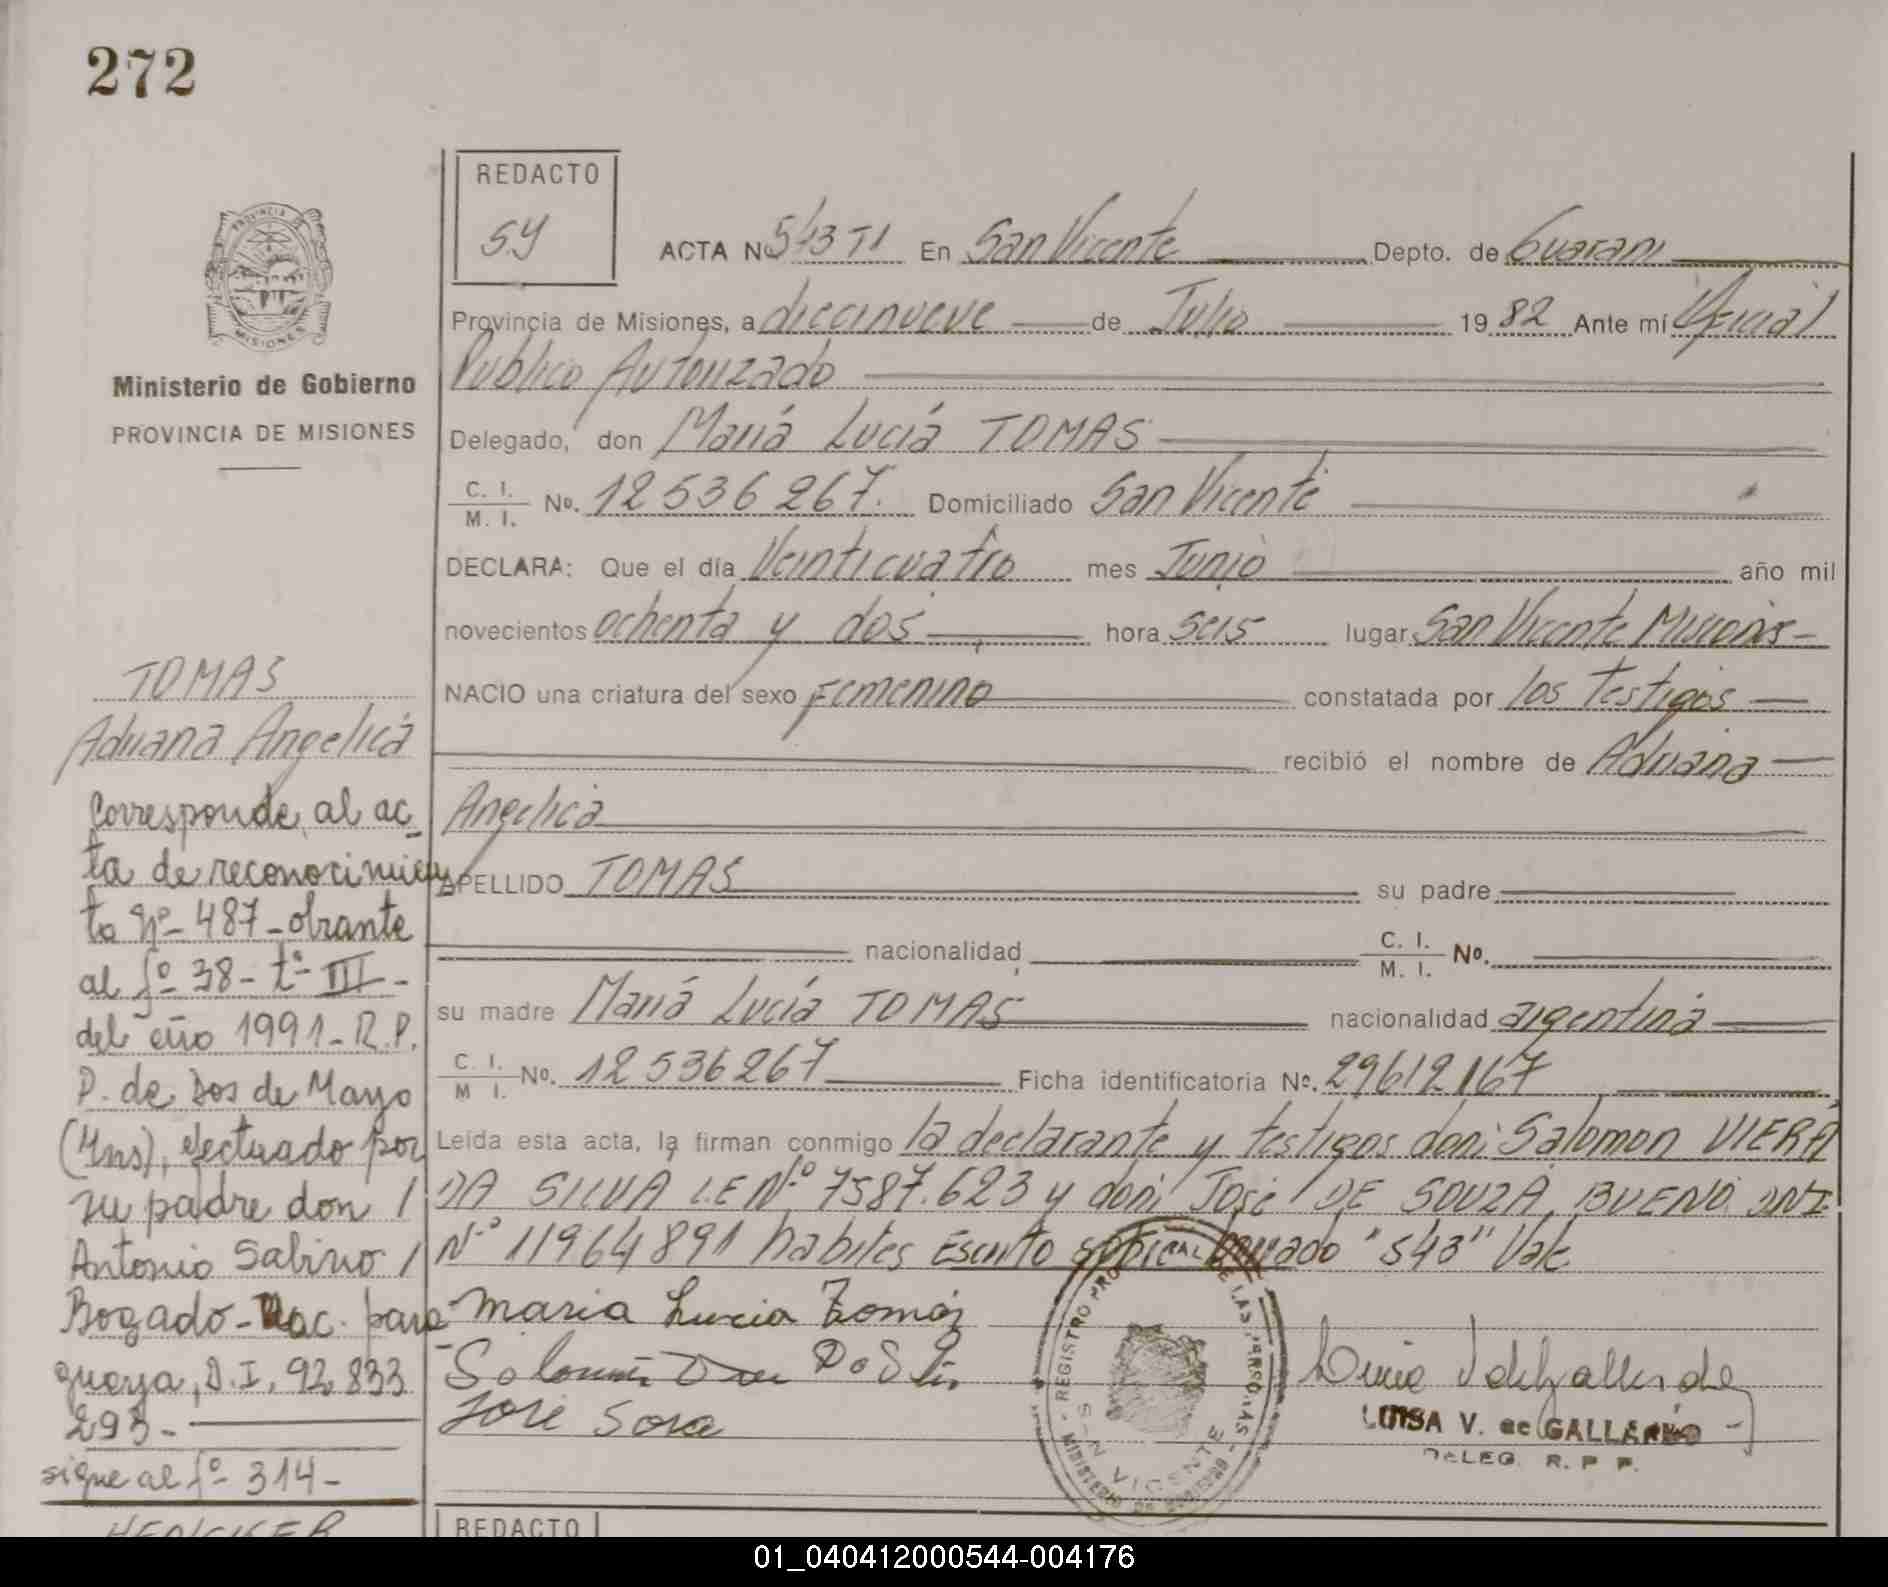 272
REDACTO
SY
ACTA Nº 543 T1 En San Vicente Depto. de Guarani
Provincia de Misiones, a diecinueve de Julio 1982 Ante mí Oficial
Publico Autorizado
Delegado, don María Lucía TOMAS
C. I. / M. I. No. 12536267. Domiciliado San Vicente
DECLARA: Que el día Veinticuatro mes Junio año mil
novecientos ochenta y dos hora seis lugar San Vicente Misiones
NACIO una criatura del sexo Femenino constatada por los testigos
recibió el nombre de Adriana
Angelica
APELLIDO TOMAS su padre
nacionalidad C. I. / M. I. No.
su madre María Lucía TOMAS nacionalidad argentina
C. I. / M I. No. 12536267 Ficha identificatoria No. 29612167
Leída esta acta, la firman conmigo la declarante y testigos don: Salomon VIERA
DA SILVA L.E Nº 7587.623 y don: José DE SOUZA BUENO DNI
Nº 11964891 habiles Escrito sobre borrado "543" Vale
Maria Lucia Tomás
José
LUISA V. de GALLARDO
DELEG. R. P. P.
REGISTRO PROVINCIAL DE LAS PERSONAS
SAN VICENTE
MINISTERIO DE GOBIERNO
PROVINCIA DE
MISIONES
Ministerio de Gobierno
PROVINCIA DE MISIONES
TOMAS
Adriana Angelica
Corresponde al ac-
ta de reconocimien
to Nº 487-obrante
al fº 38- tº III-
del año 1991-R.P.
P. de Dos de Mayo
(Mns), efectuado por
su padre don /
Antonio Sabino /
Bogado- Nac. para-
guaya, D.I, 92.833
293-
sigue al fº 314-
REDACTO
01_040412000544-004176